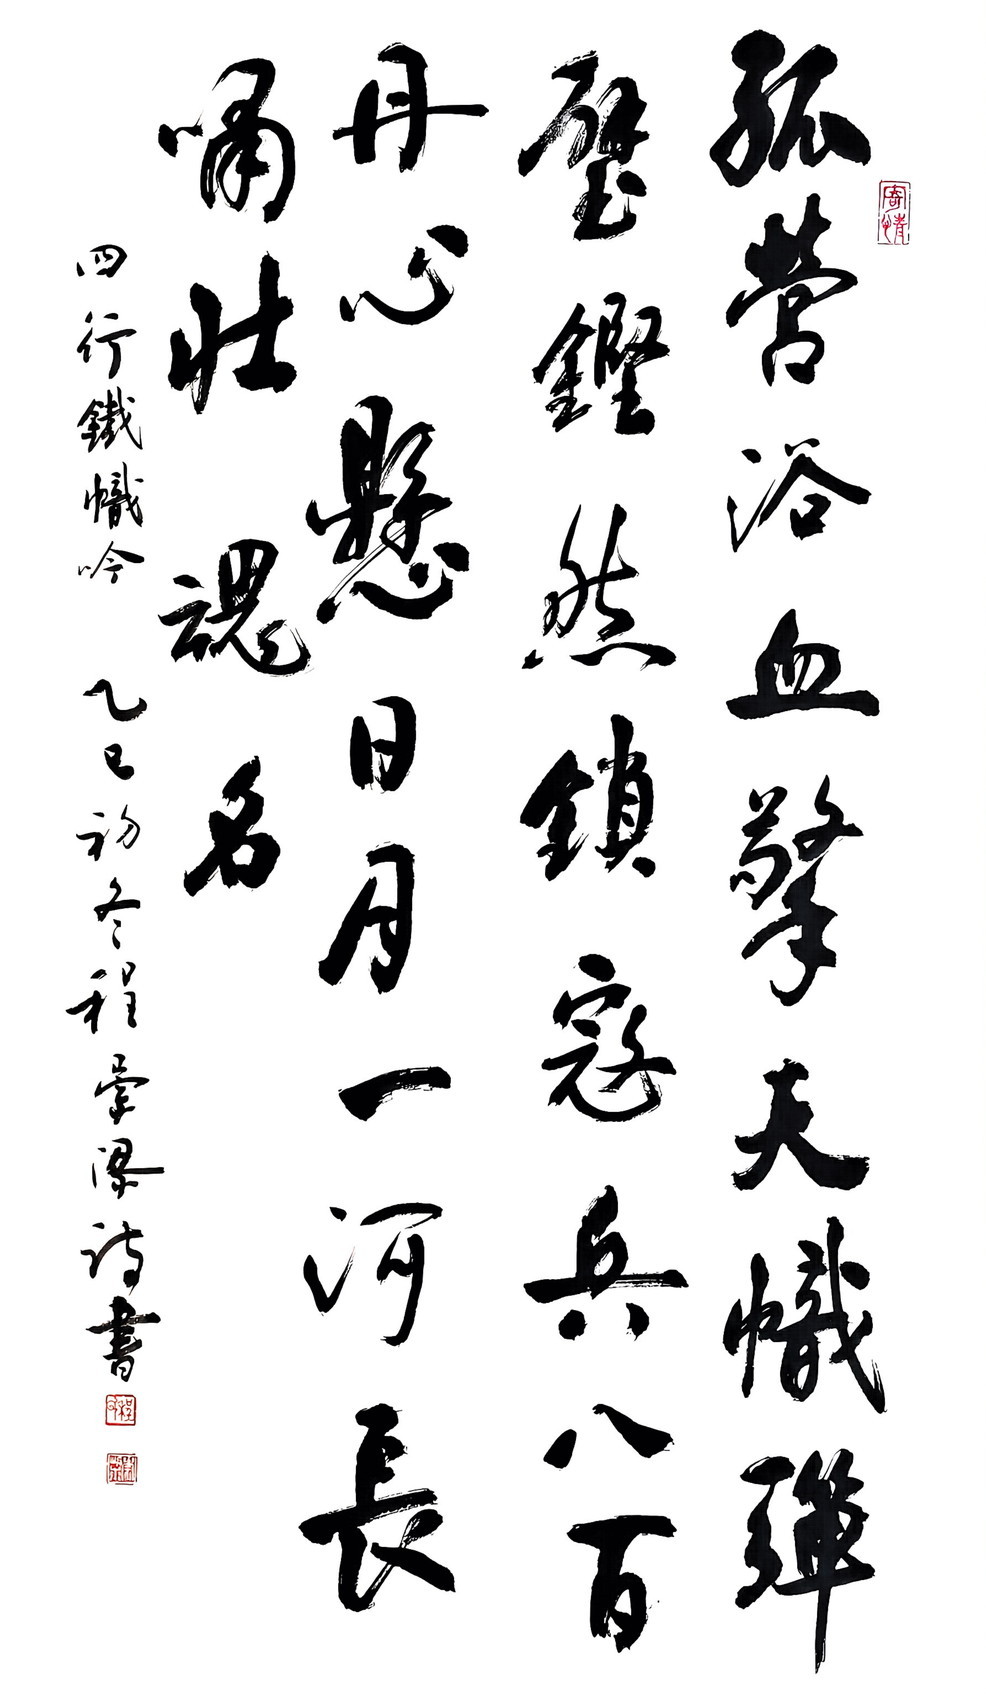 寄情
孤營浴血擎天幟彈
壁鏗然鎖寇兵八百
丹心懸日月一河長
嘯壯魂名
四行鐵幟吟 乙巳初冬程詩書